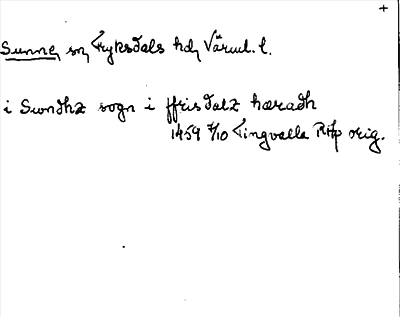 +
Sunne, sn, Fryksdals hd, Värml. l.
i Swndhz sogn i ffrisdalz hæradh
1459 4/10 Tingvalla RAp orig.